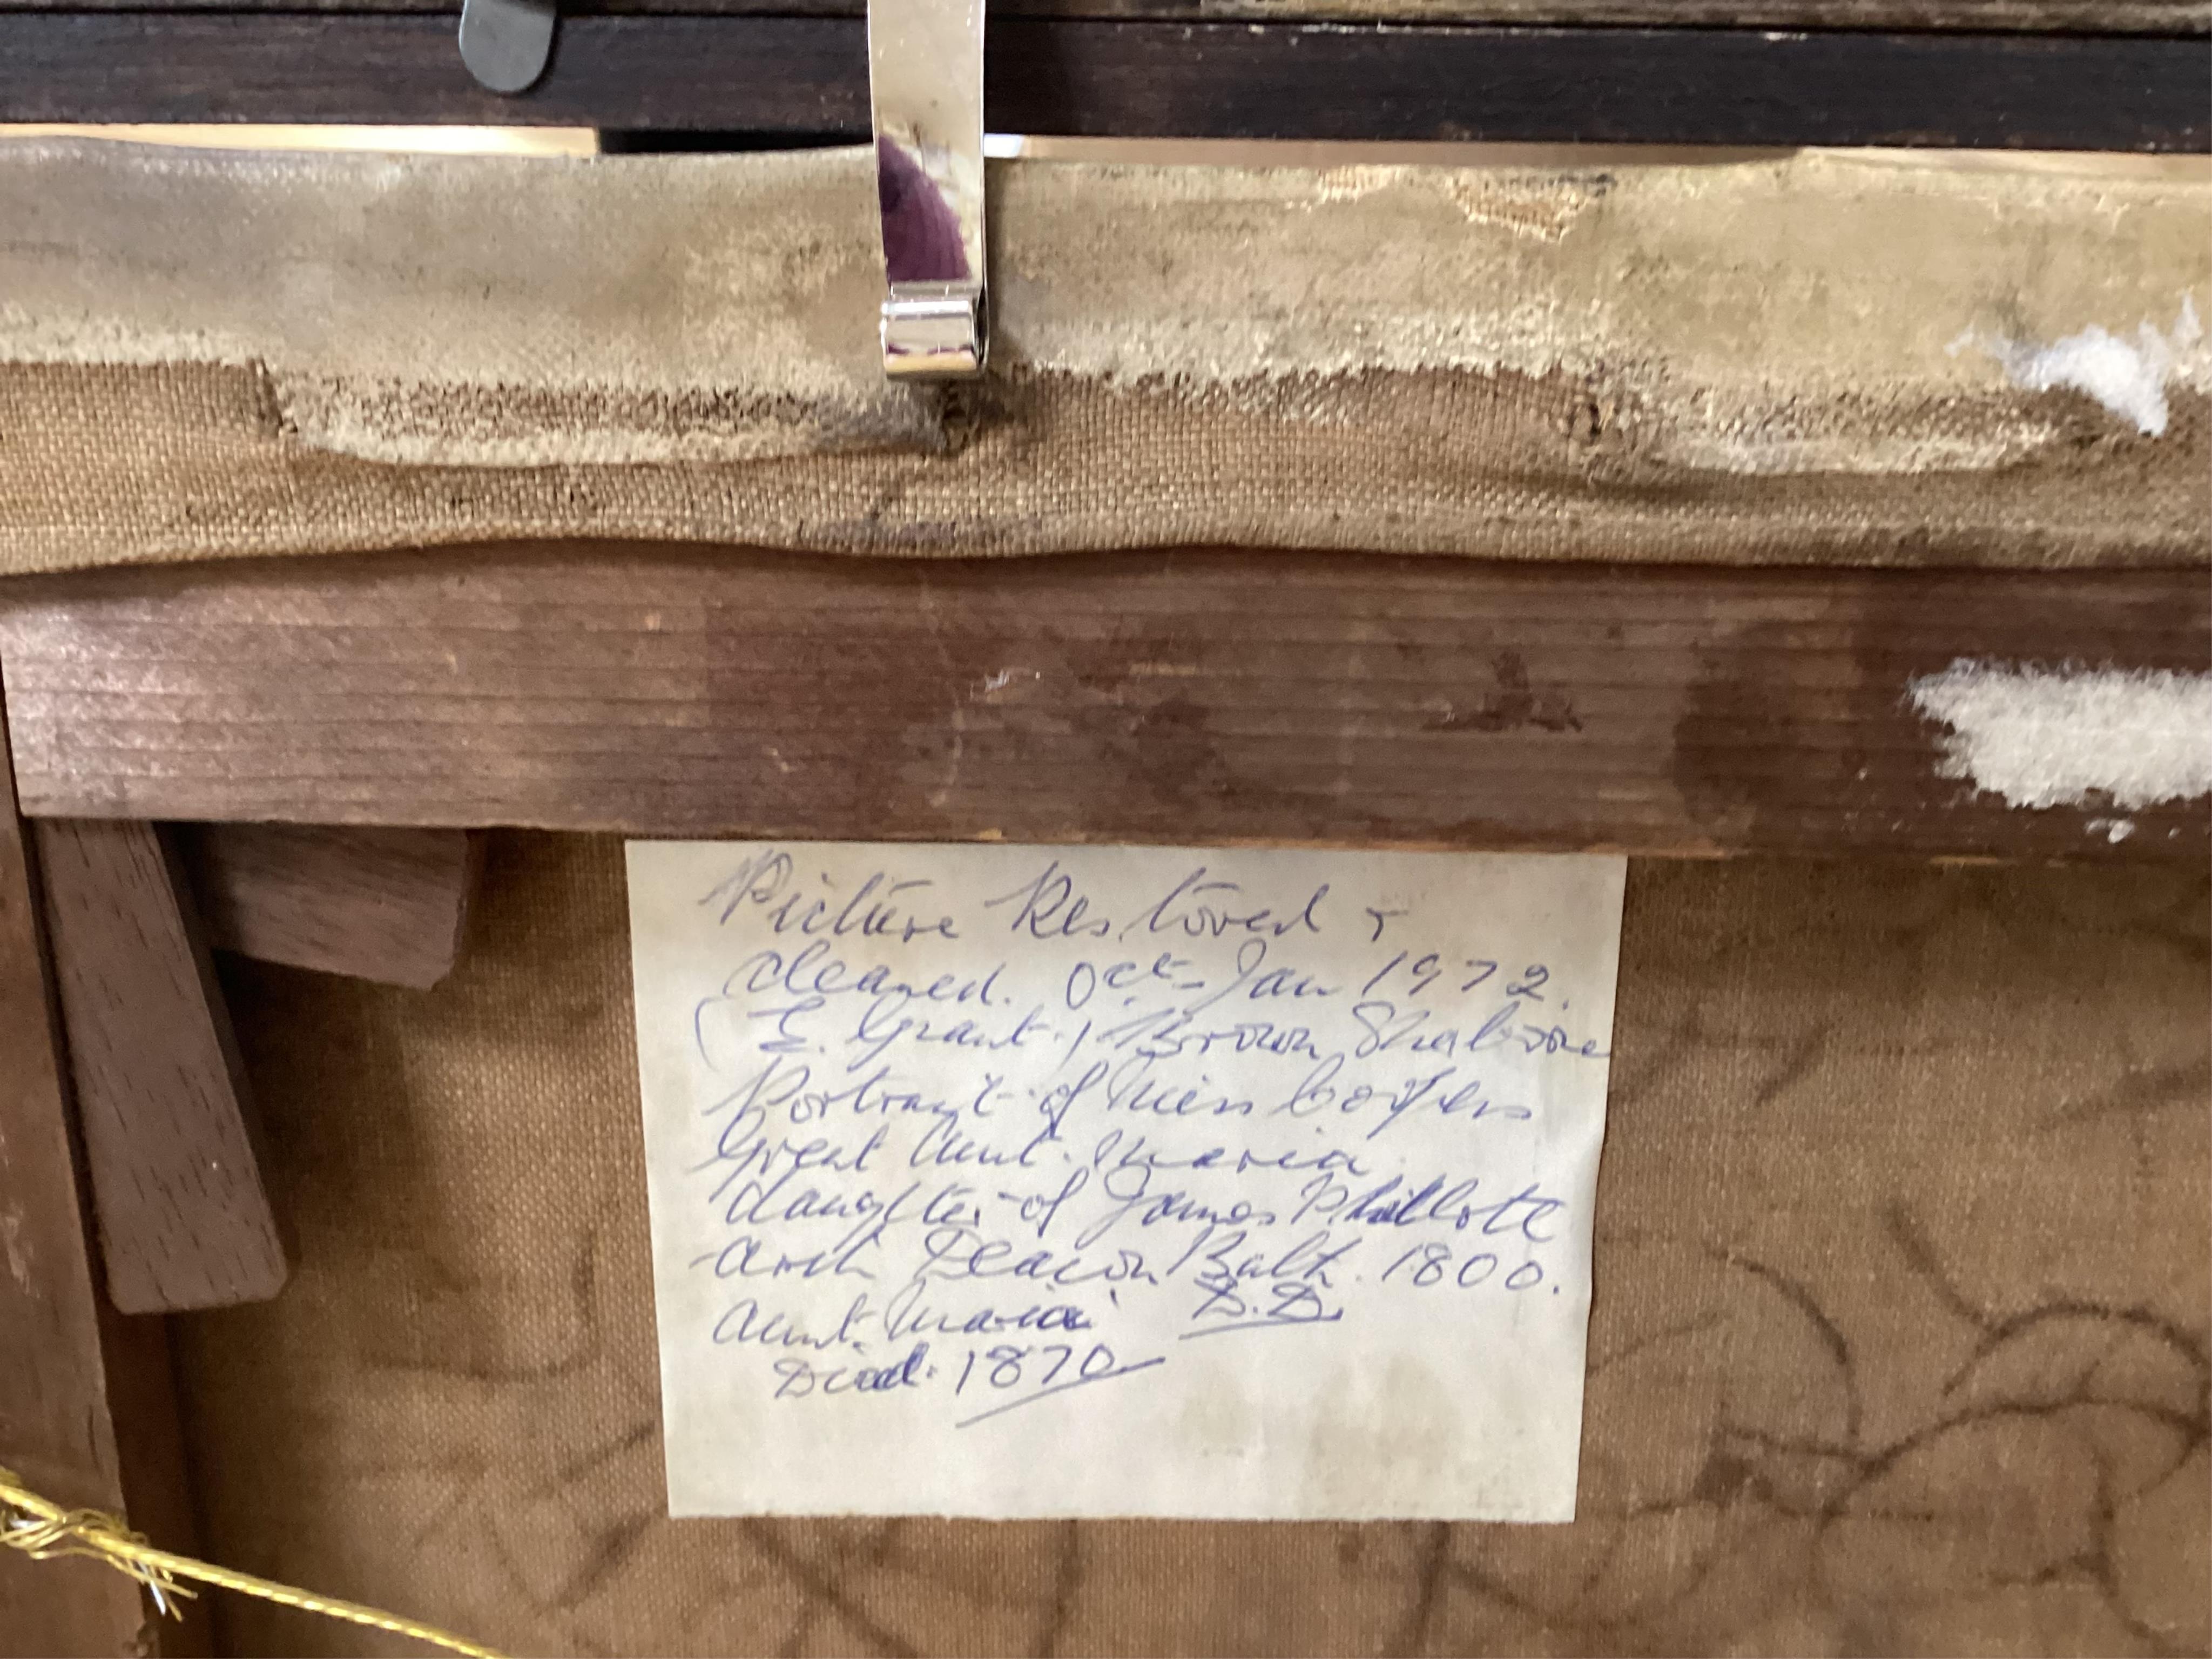 Picture Restored &
cleaned. Oct - Jan 1972.
(E. Grant.) Brown
Portrait of Miss
Great Aunt. Maria
daughter of James Phillott
Arch Deacon Bath. 1800.
Aunt. Maria D.D.
Died. 1870